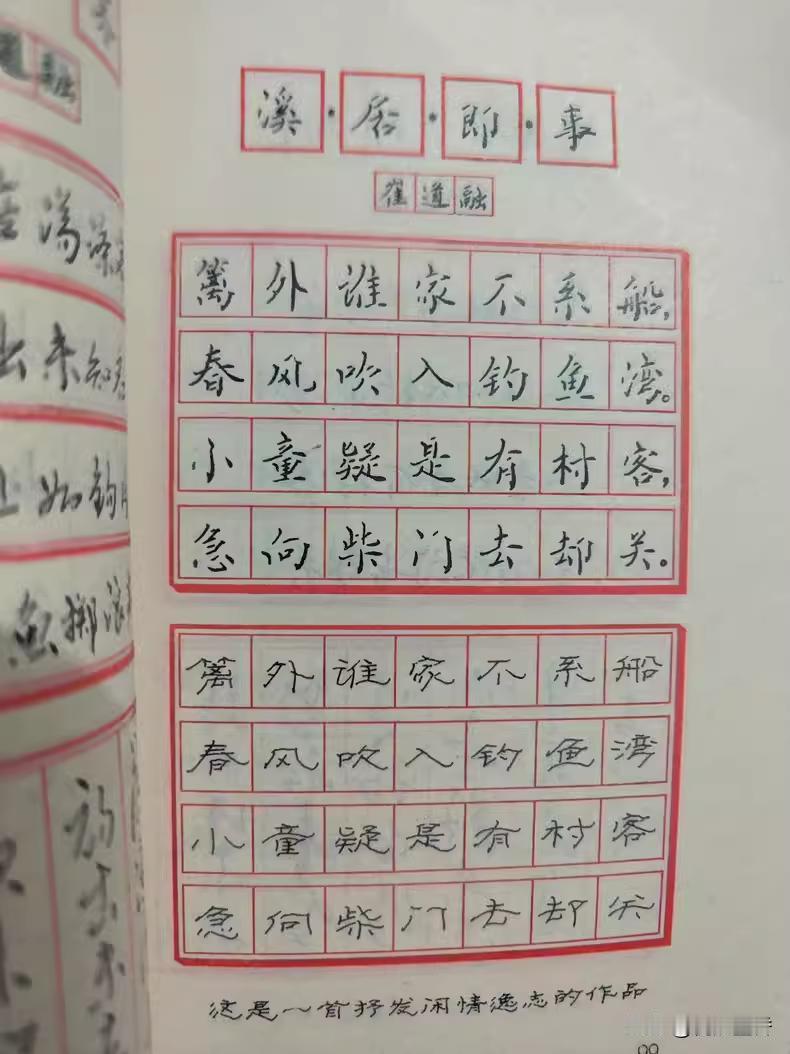 溪·居·即·事
崔道融
篱外谁家不系船,
春风吹入钓鱼湾。
小童疑是有村客,
急向柴门去却关。
篱外谁家不系船
春风吹入钓鱼湾
小童疑是有村客
急向柴门去却关
这是一首抒发闲情逸志的作品
融
荡涤
出来知君
如钩
鱼掷浪
99